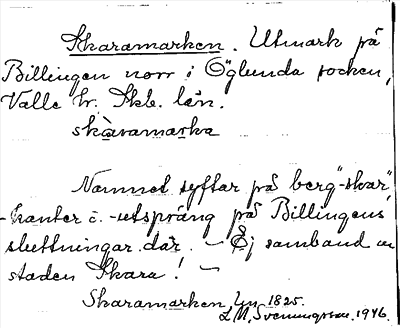 Skaramarken. Utmark på
Billingen norr i Öglunda socken,
Valle hr. Skb. län.
skàramarka
Namnet syftar på berg-"skar"
-kanter o. -utsprång på Billingens
sluttningar där. – Ej samband m
staden Skara! –
Skaramarken, 1825.
L.M. Svenungsson. 1946.